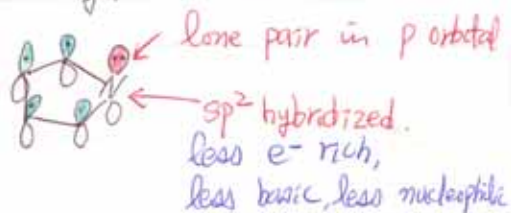 lone pair in p orbital
N
sp² hybridized.
less e⁻ rich,
less basic, less nucleophilic